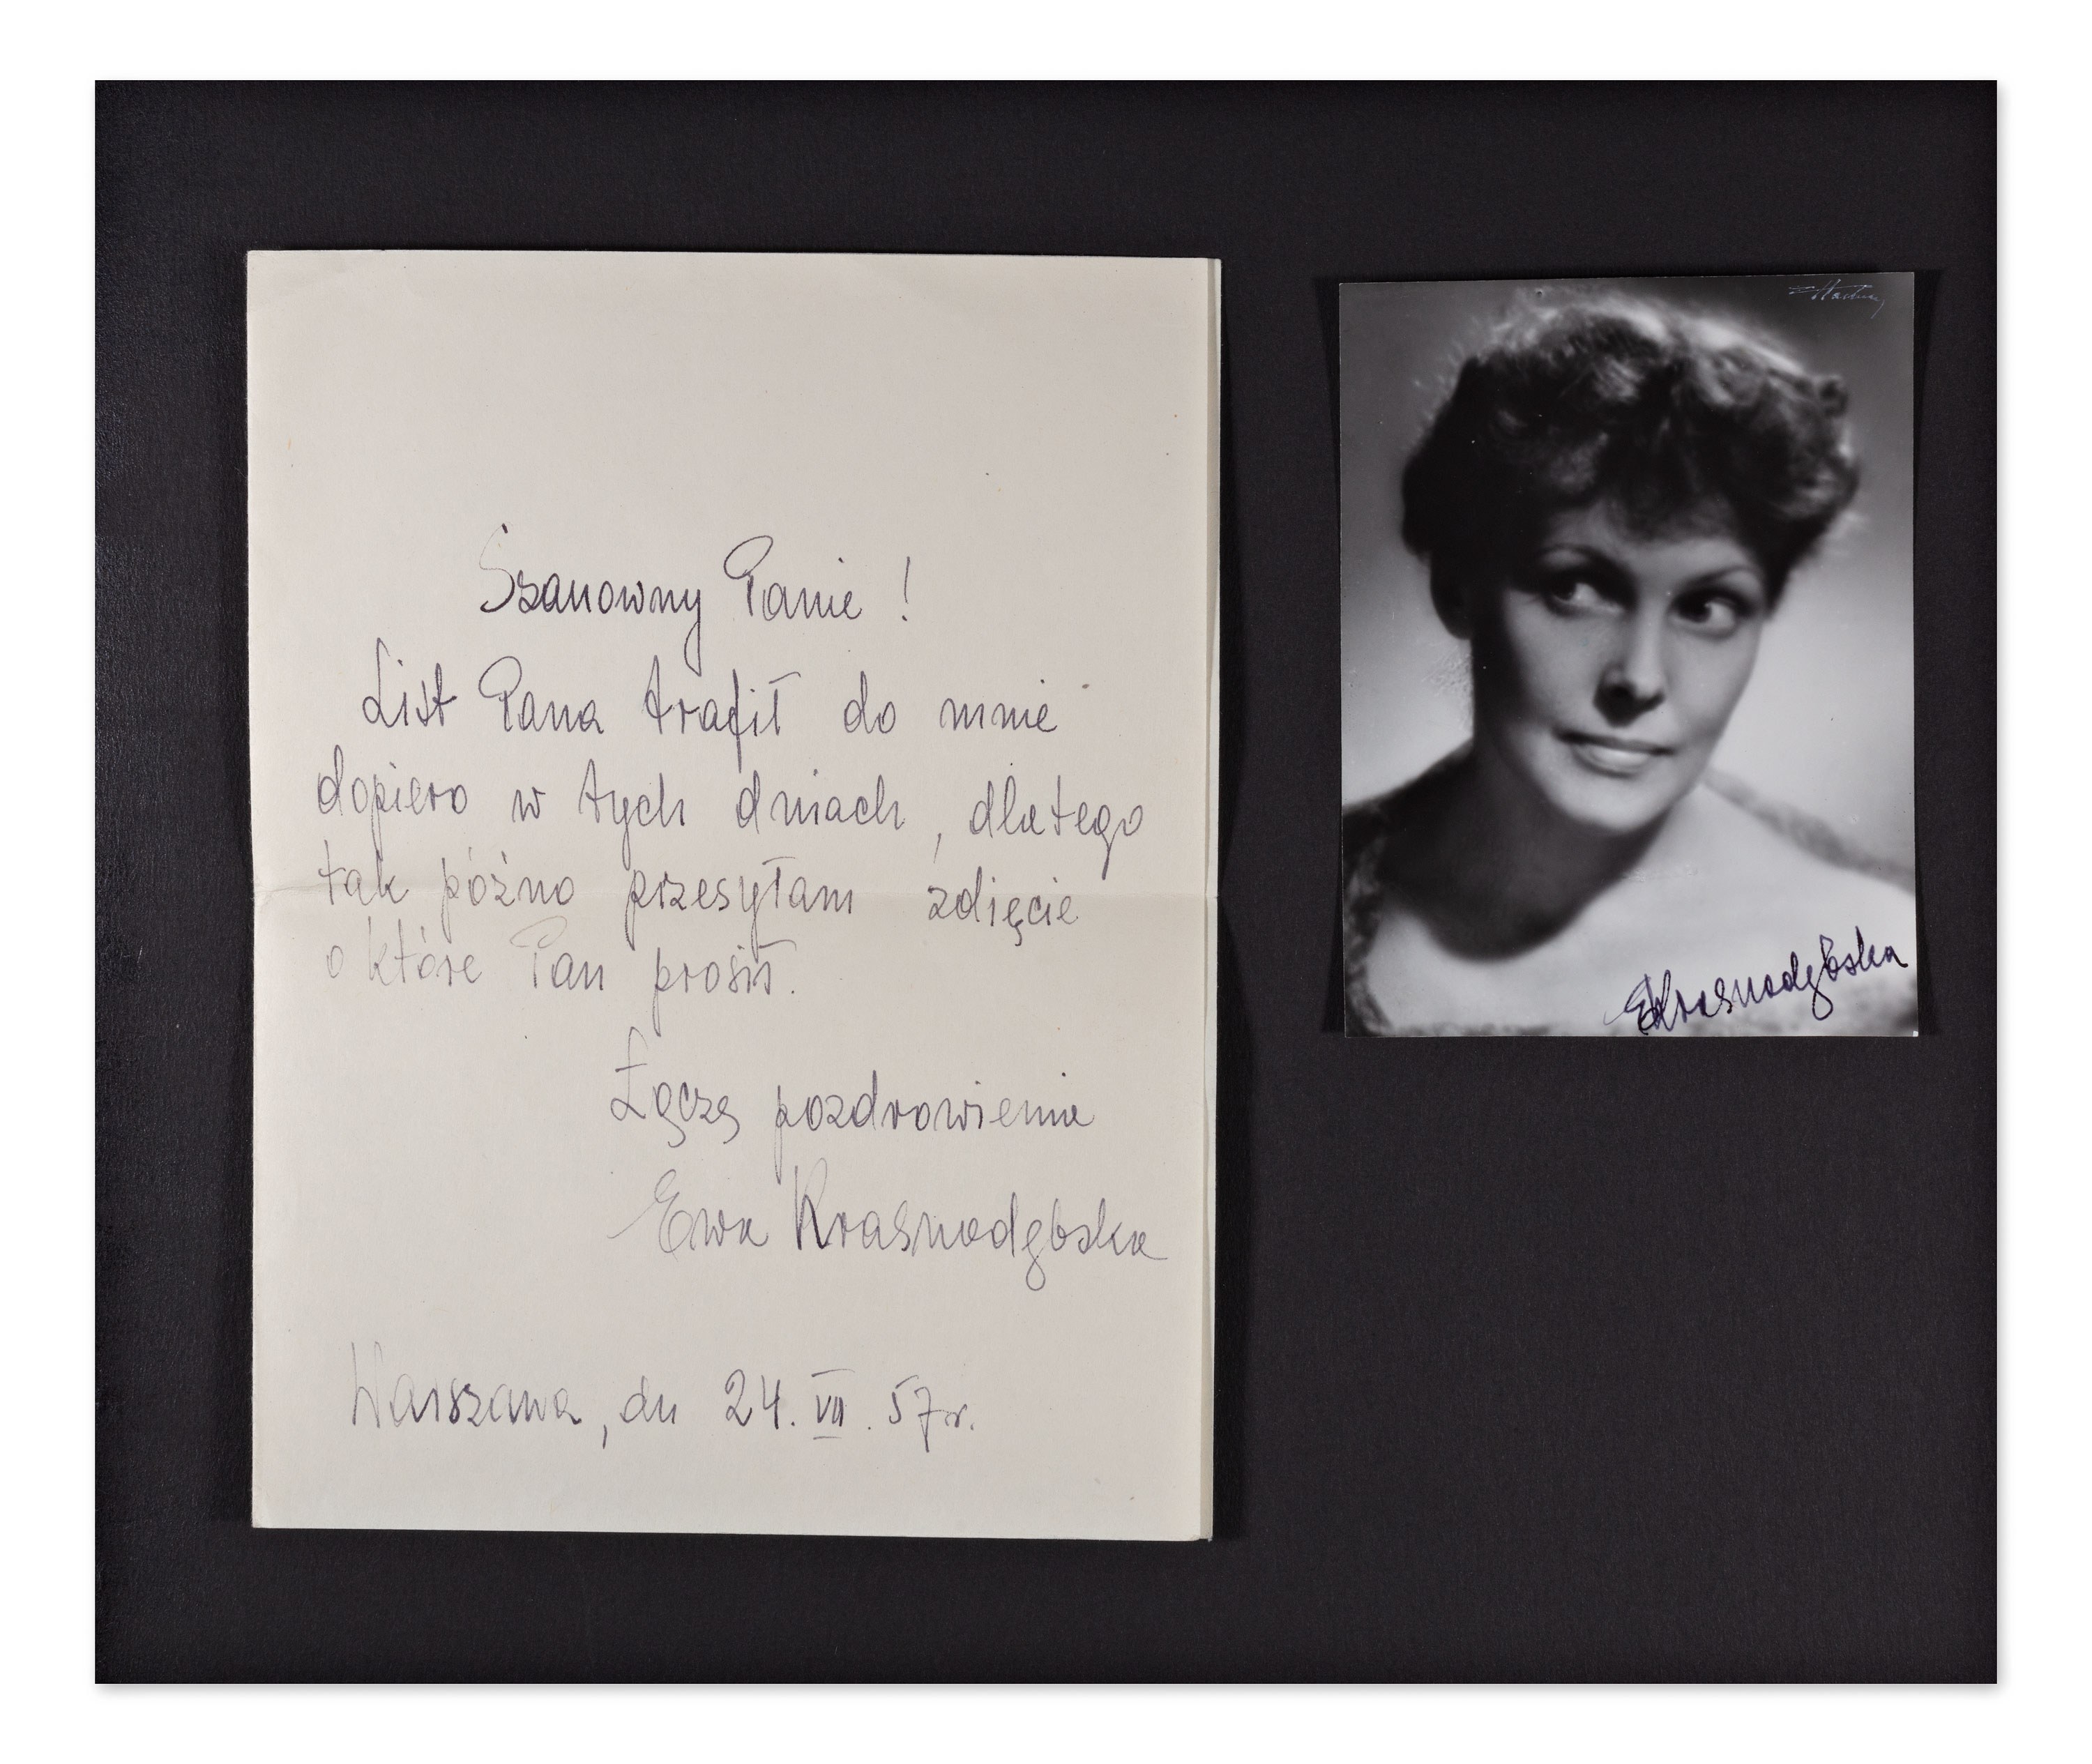 Szanowny Panie !
List Pana trafił do mnie
dopiero w tych dniach, dlatego
tak późno przesyłam zdięcie
o które Pan prosił.
Łączę pozdrowienia
Ewa Krasnodębska
Warszawa, dn 24. VII. 57 r.
EKrasnodębska